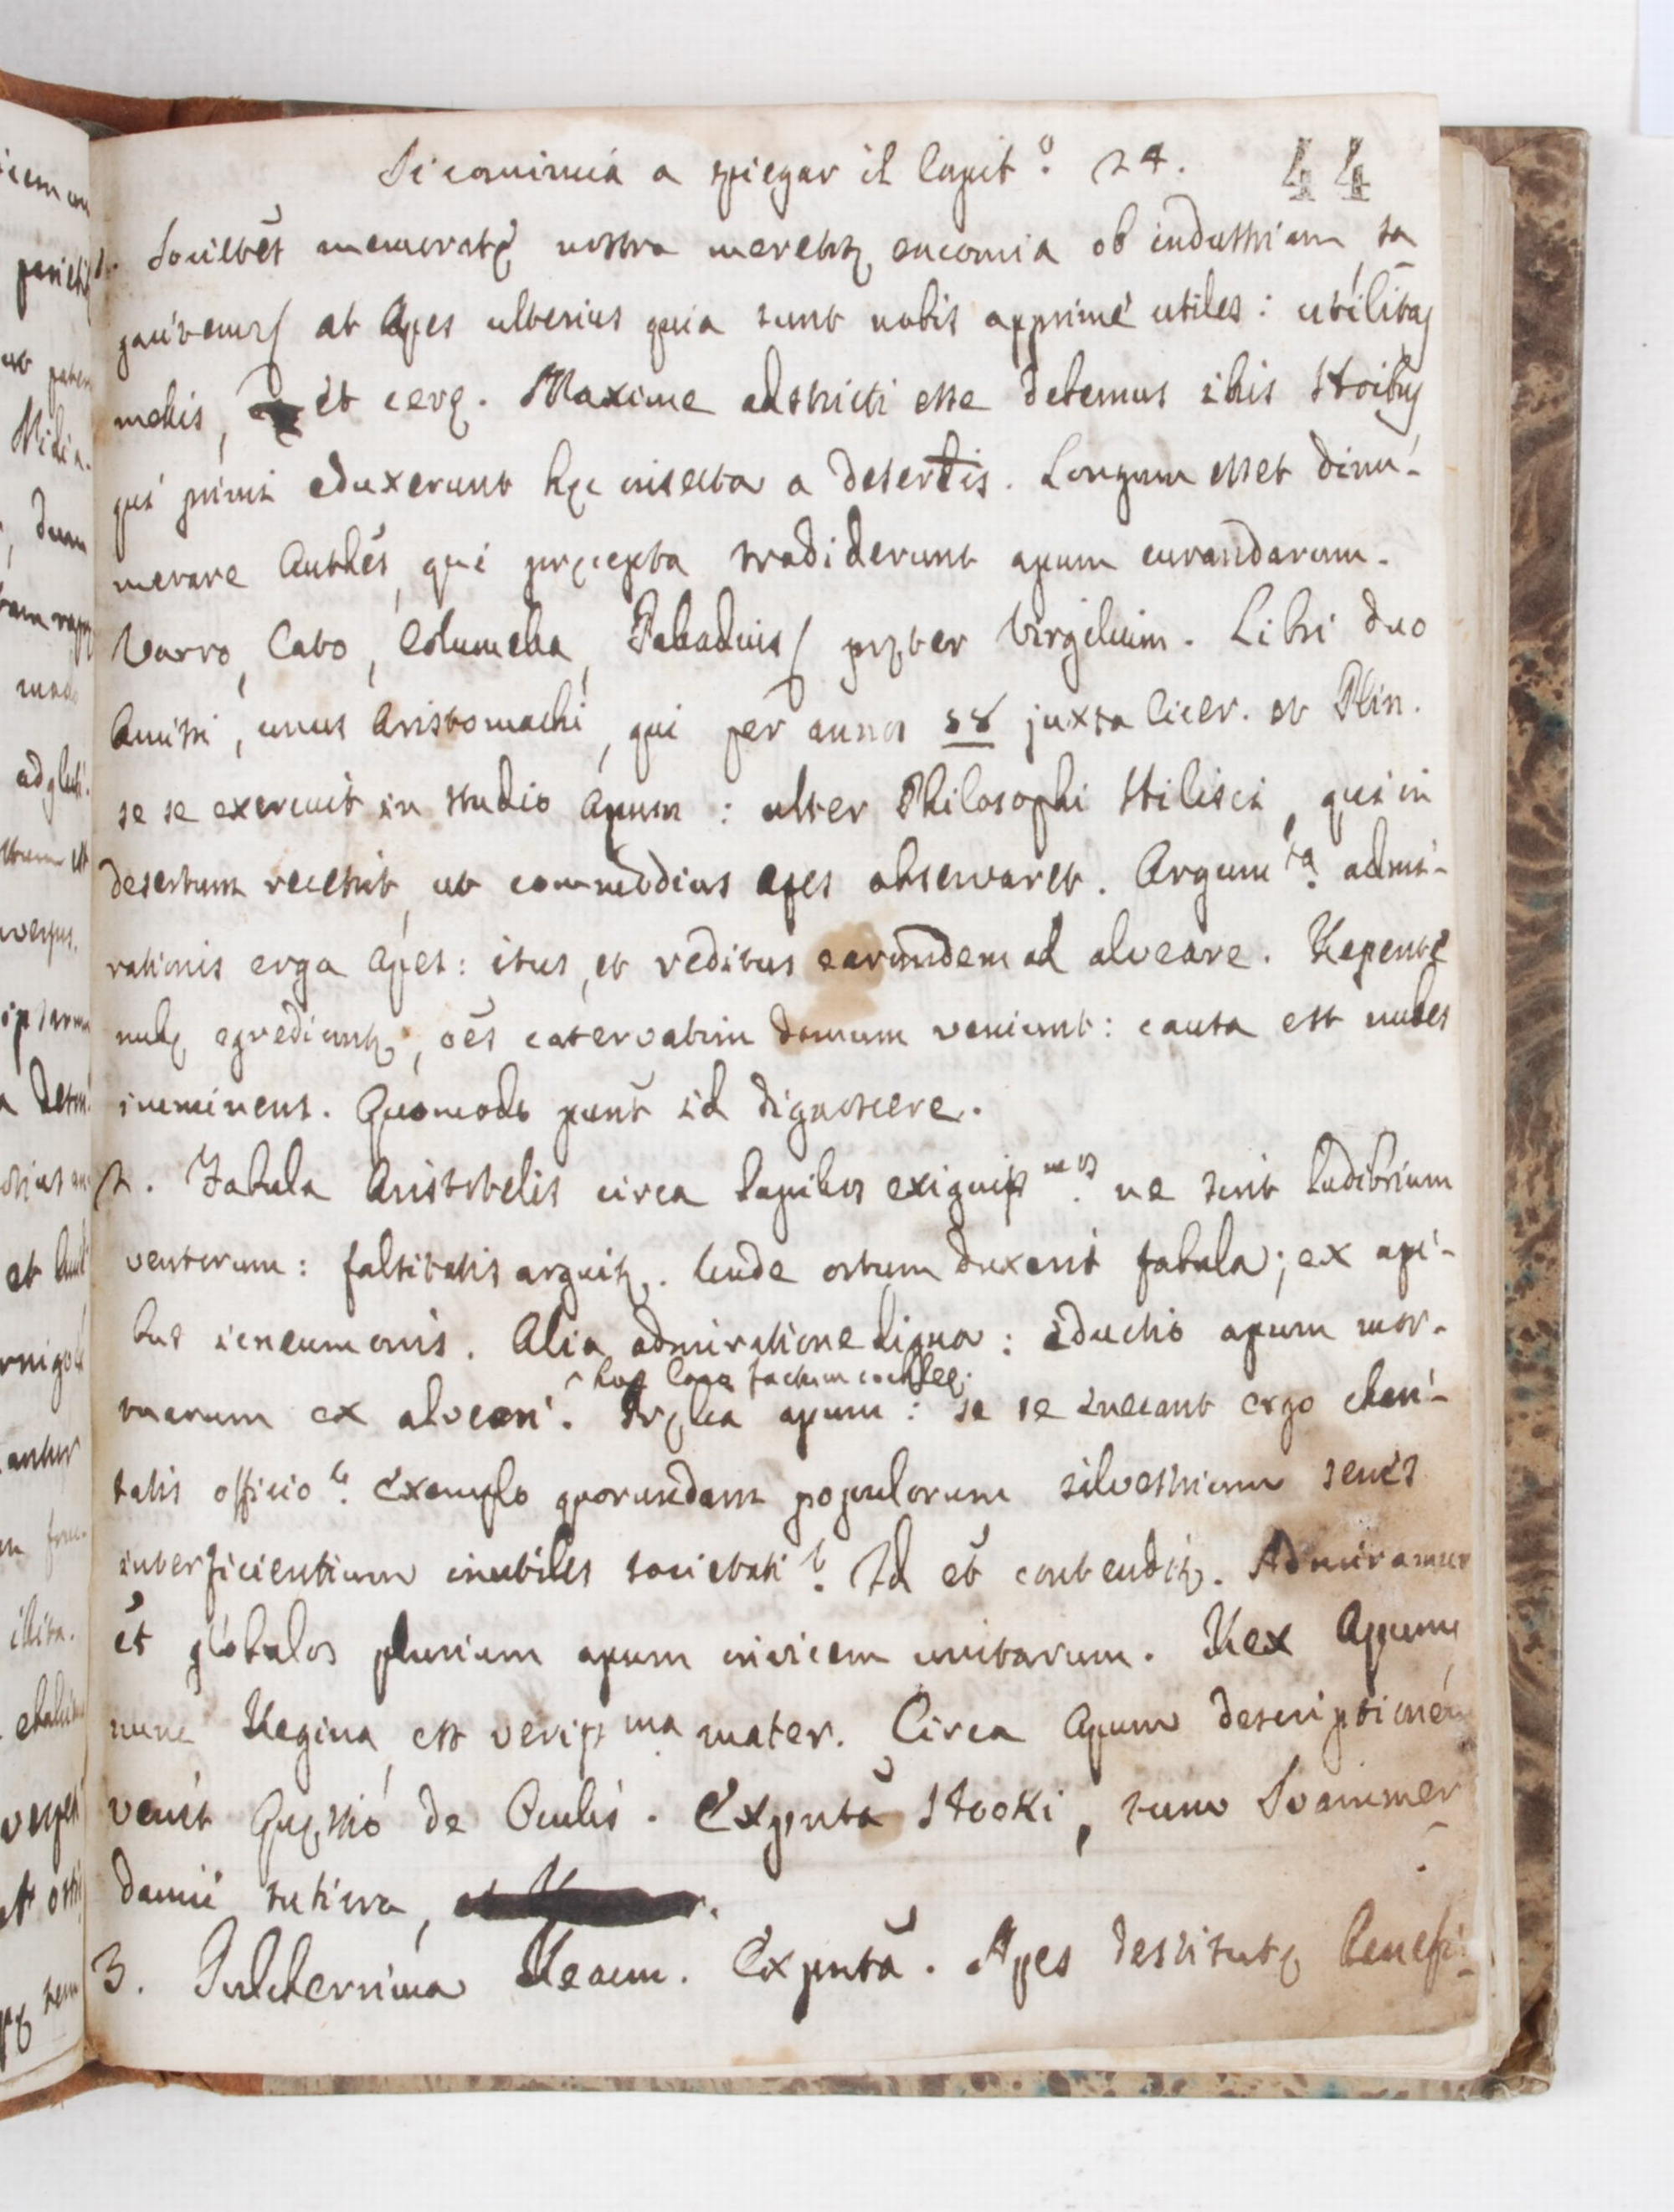 Si comincia a spiegar il Capit.o 24.
44
1. Societẽs memoratę nostra merentr encomia ob industriam, sa
gacitatem, at Apes ulterius quia sunt nobis apprimè utiles: utilitas
mellis, et cerę. Maxime adstricti esse debemus illis Hõibus
qui primi eduxerunt hęc insecta a desertis. Longum esset dinu-
merare Authẽs, qui pręcepta tradiderunt apum curandarum.
Varro, Cato, Columella, Palladius, pręter Virgilium. Libri duo
Amissi, unus Aristomachi, qui per annos 58 juxta Cicer. et Plin.
se se exercuit in studio Apum: alter Philosophi Hilisci, qui in
desertum recessit, ut commodius apes observaret. Argum.ta admi-
rationis erga Apes: itus, et reditus earumdem ad alveare. Repente
nullę egrediuntr, oẽs catervatim domum veniunt: causa est nubes
imminens. Quomodo punt̃ id dignoscere.
2. Fabula Aristotelis circa lapillos exiguiss.mos ne sint ludibrium
ventorum: falsitatis arguitr. Unde ortum duxerit fabula; ex api-
bus icneumonis. Alia admiratione digna: Eductio apum mor-
hac factum cochleę.
tuarum ex alveari. Pręlia apum: se se enecant ergo chari-
tatis officio? Exemplo quorundam populorum silvestrium senes
interficientium inutiles societati? Id ẽt contenditr. Admiramur
ẽt globulos plurium apum invicem unitarum. Rex Apum
nunc Regina, est veriss.ma mater. Circa Apum descriptionem
venit Quęstio de Oculis. Expnta Hooki, tum Svammer
damii
3. Pulcherrima Reaum. Expnta. Apes destitutę benefi-